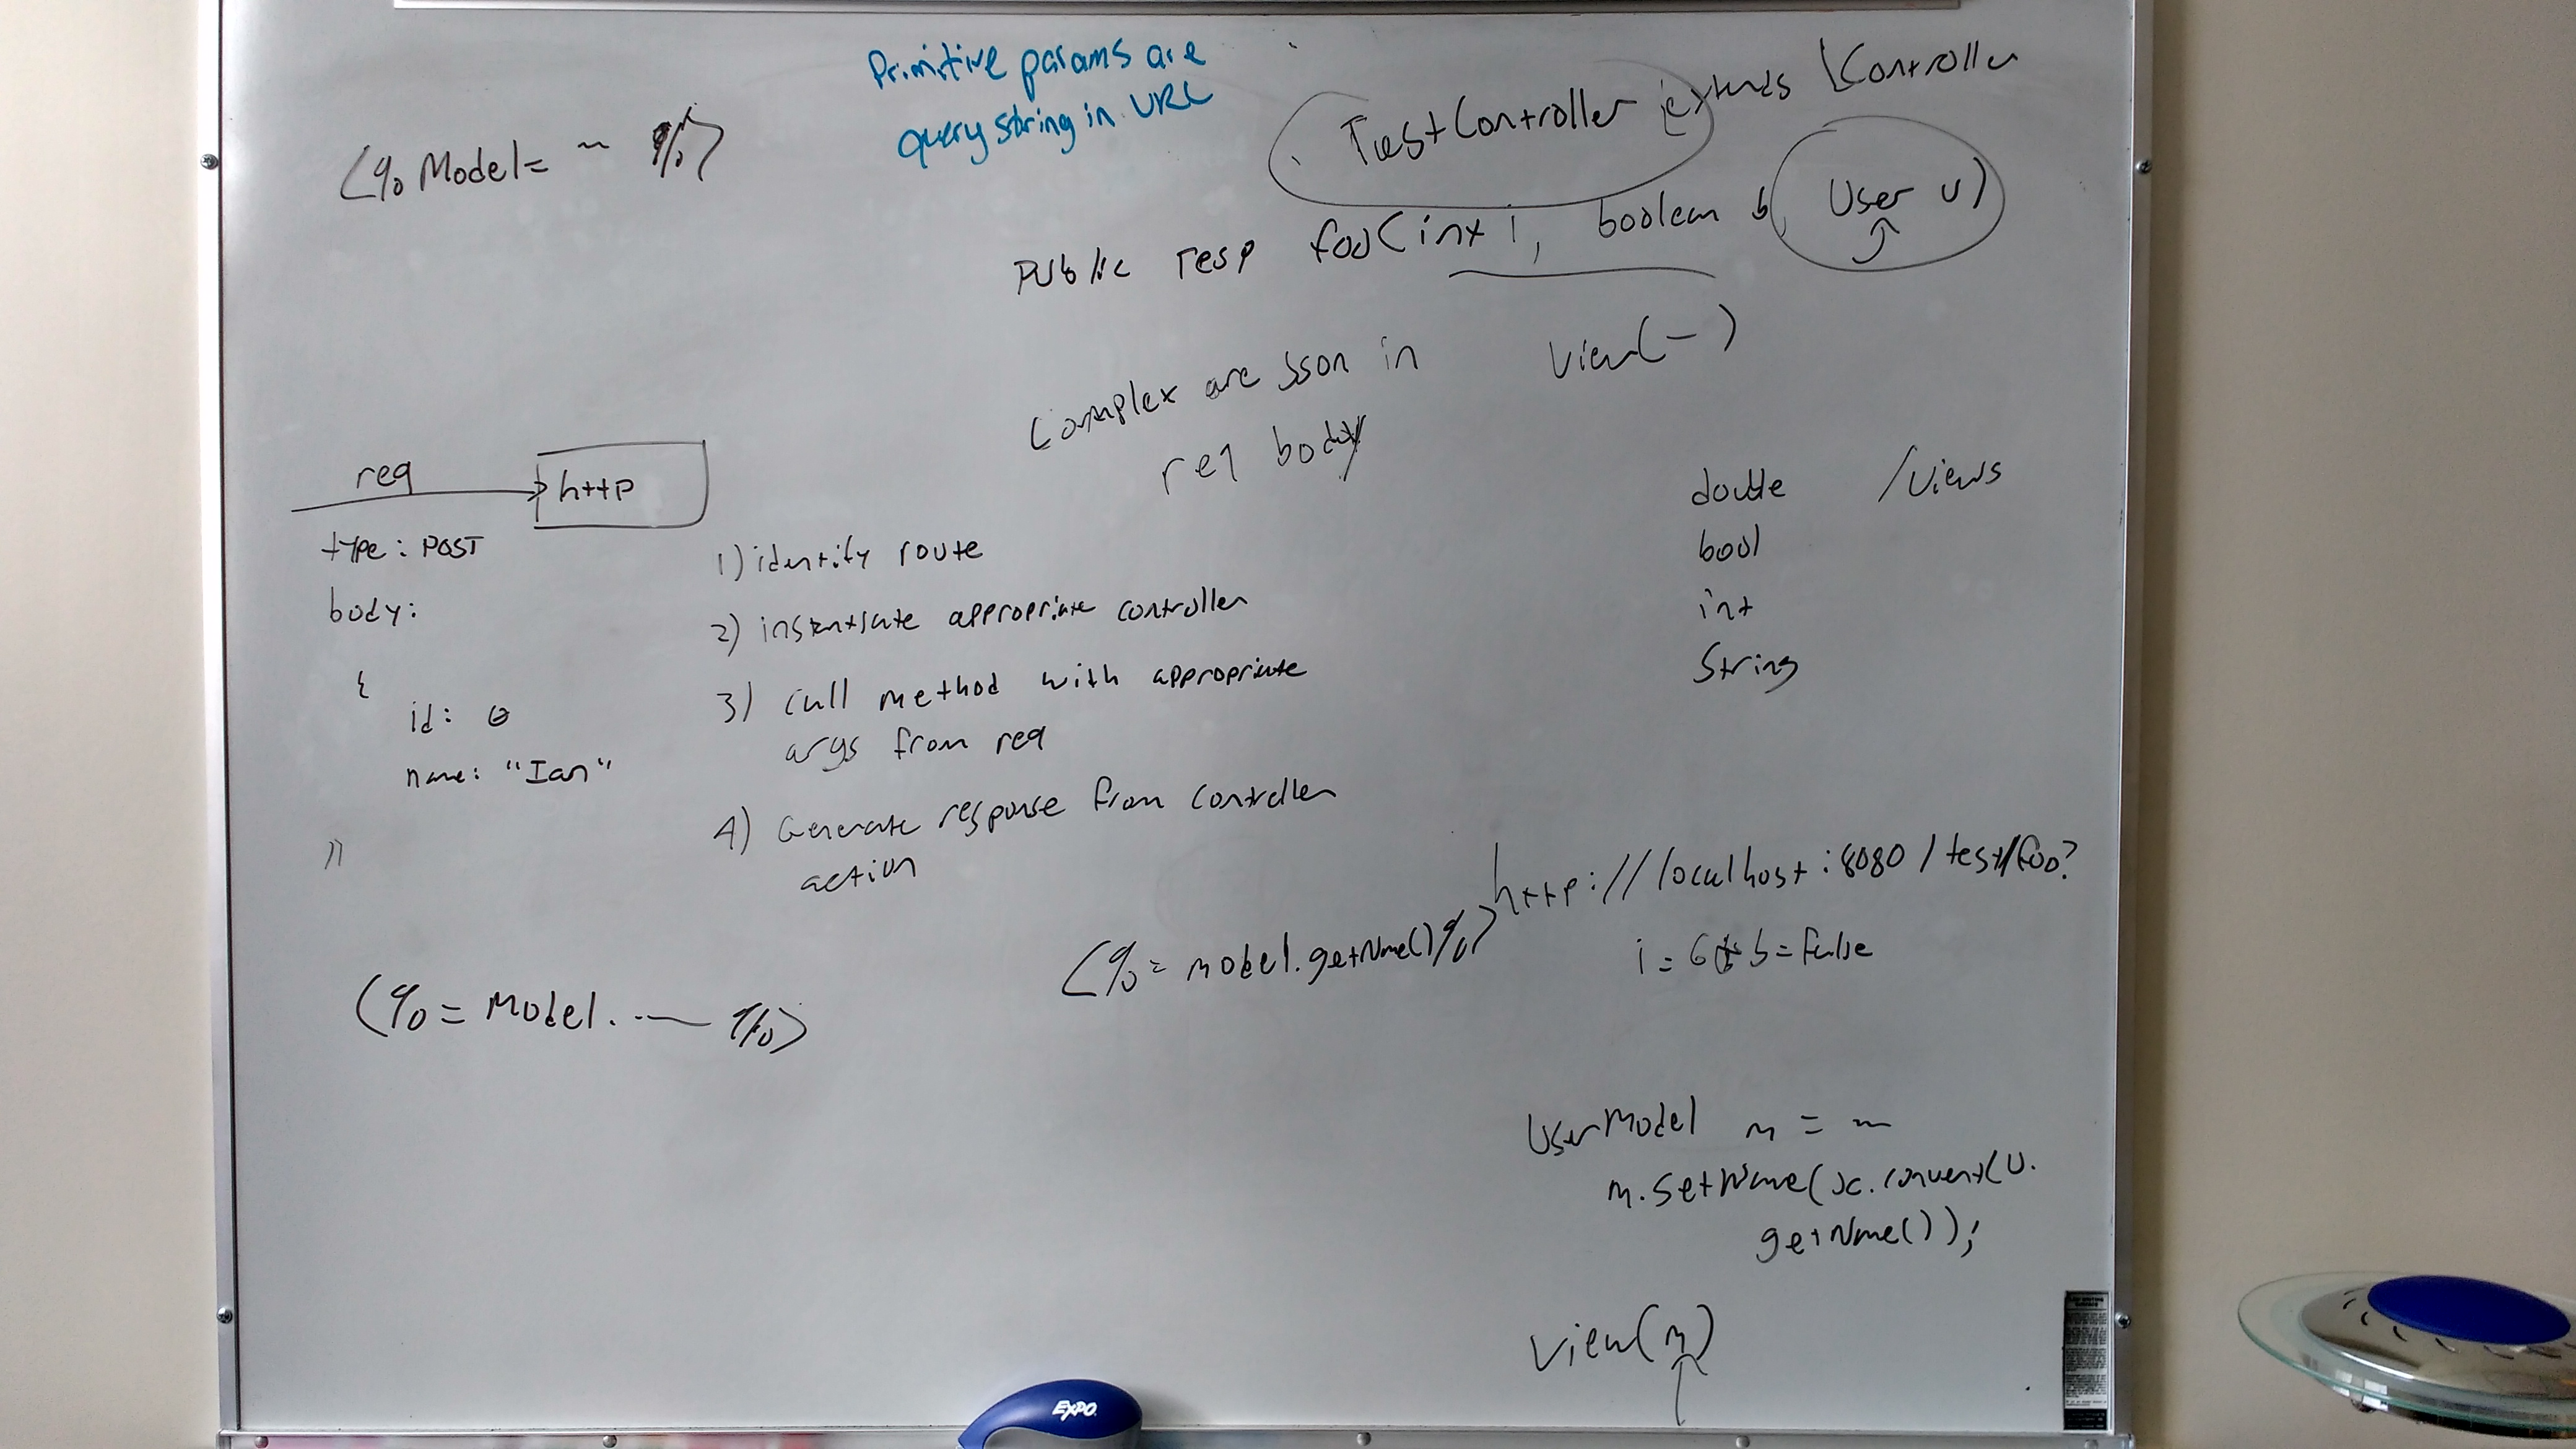 Primitive params are
query string in URL
<% Model= ~ %>
TestController extends Controller
public resp foo(int i, boolean b, User u)
Complex are Json in
req body
View(-)
req
http
type: POST
body:
{
id: 0
name: "Ian"
}
1) identify route
2) instantiate appropriate controller
3) call method with appropriate
args from req
4) Generate response from controller
action
double
bool
int
String
/Views
http://localhost:8080/test/foo?
i=6&b=false
<%= model.getName()%>
<%= Model. %>
UserModel m = ~
m.setName(x.convert(u.
getName());
View(m)
EXPO